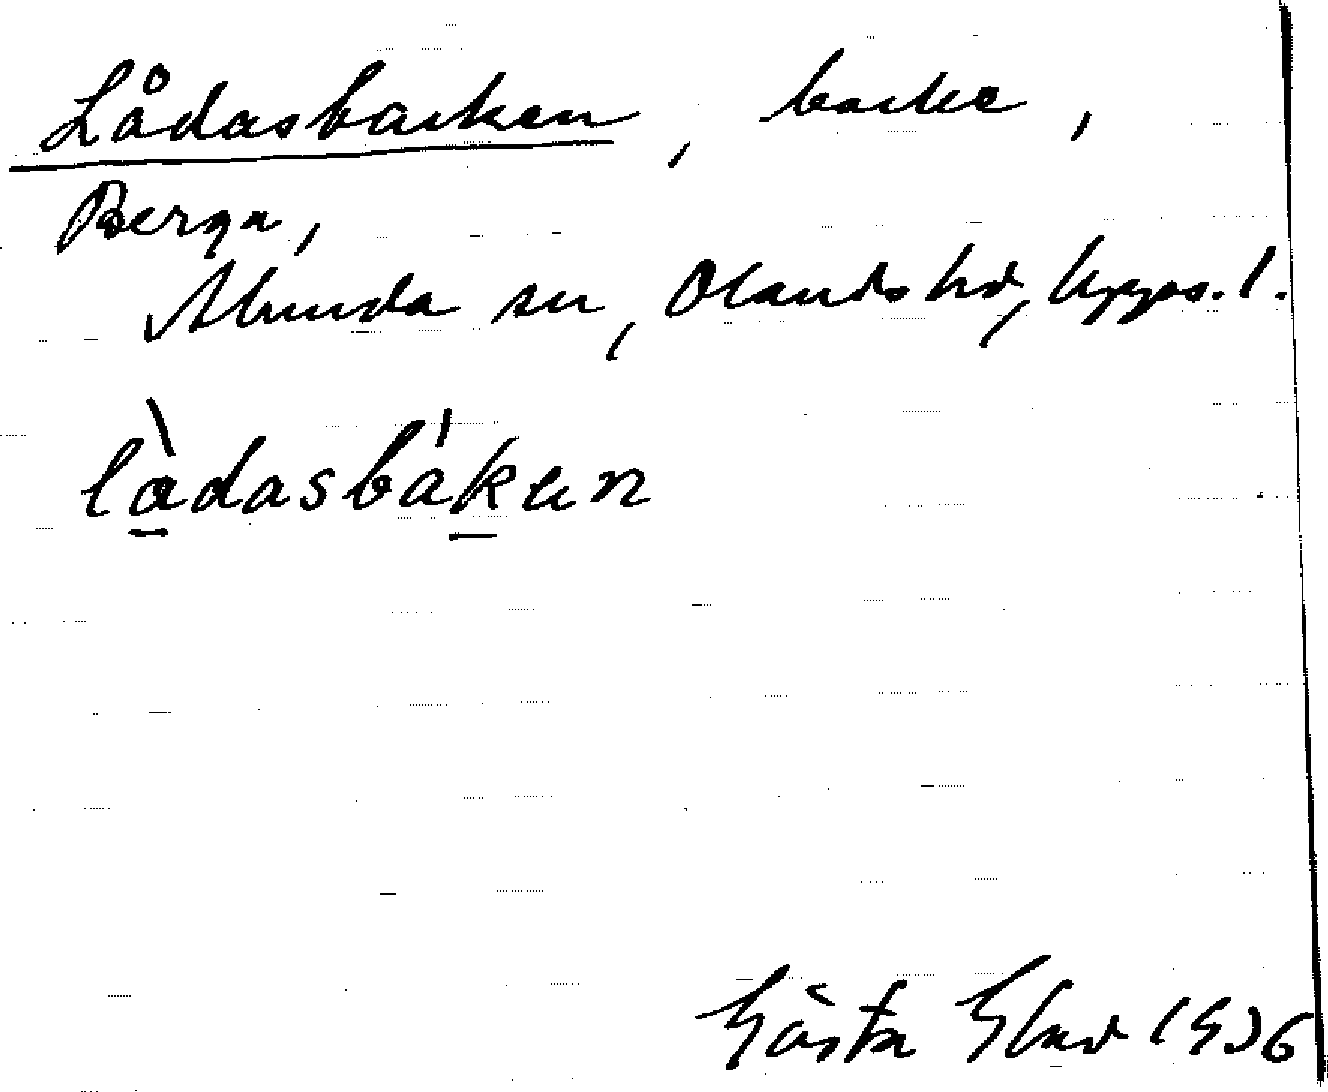 Lådasbacken, backe,
Berga,
Alunda sn, Olands hd, Upps. l.
làdasbákan
Gösta 1936